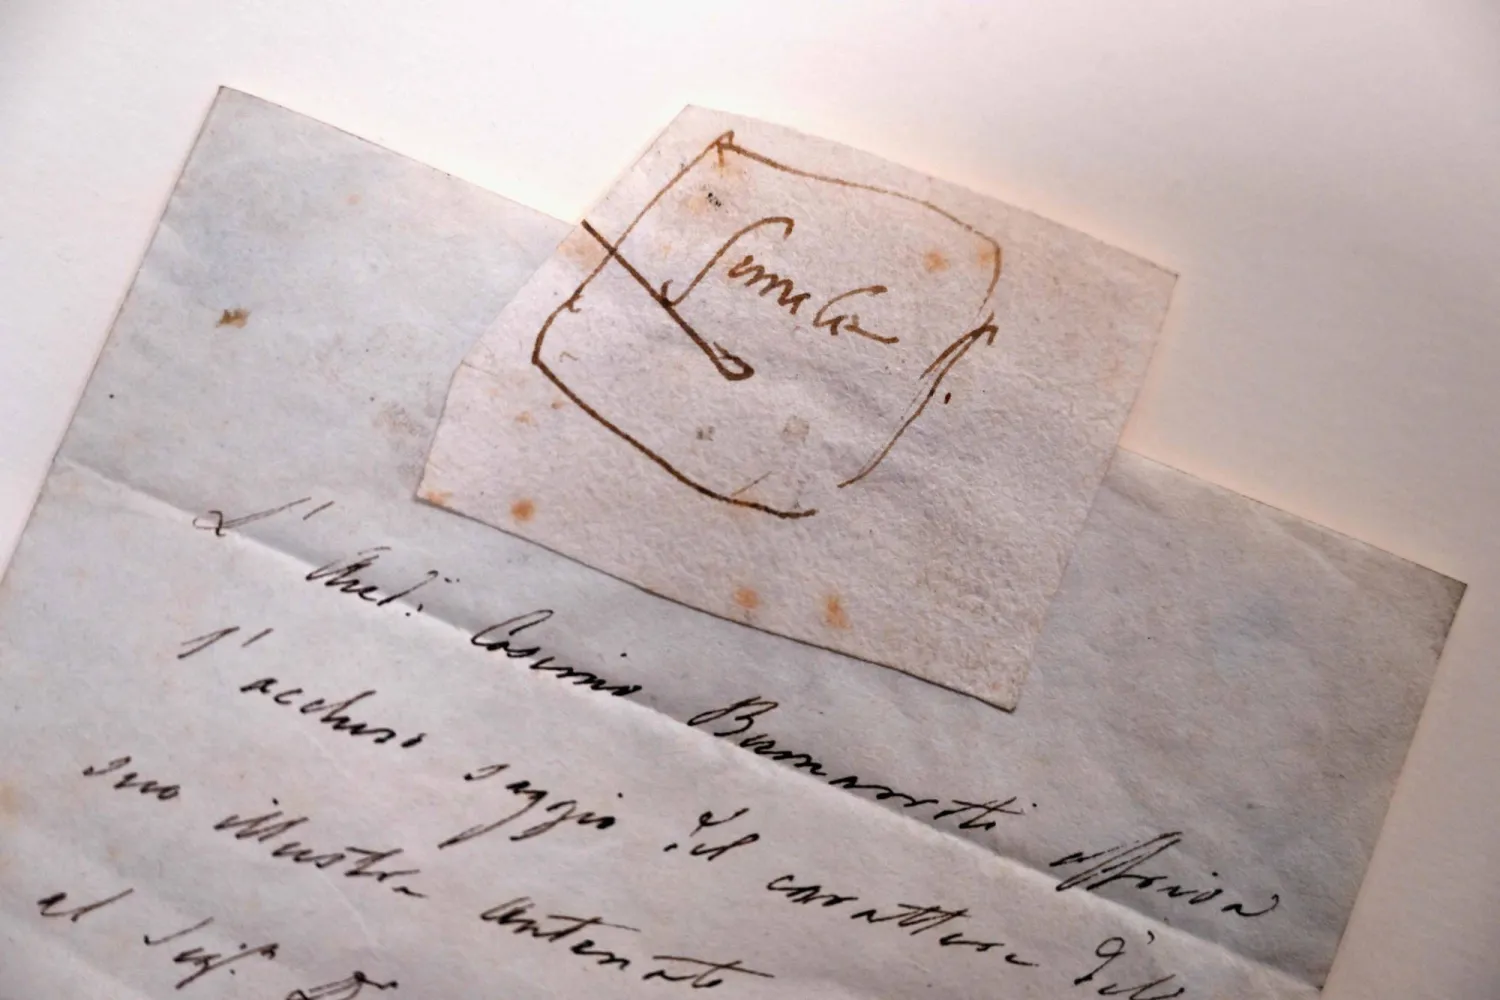 simile
L' Aud: Cosimo Buonarroti offriva
l' accluso saggio del carattere
suo illustre antenato
al Sig.r D.r